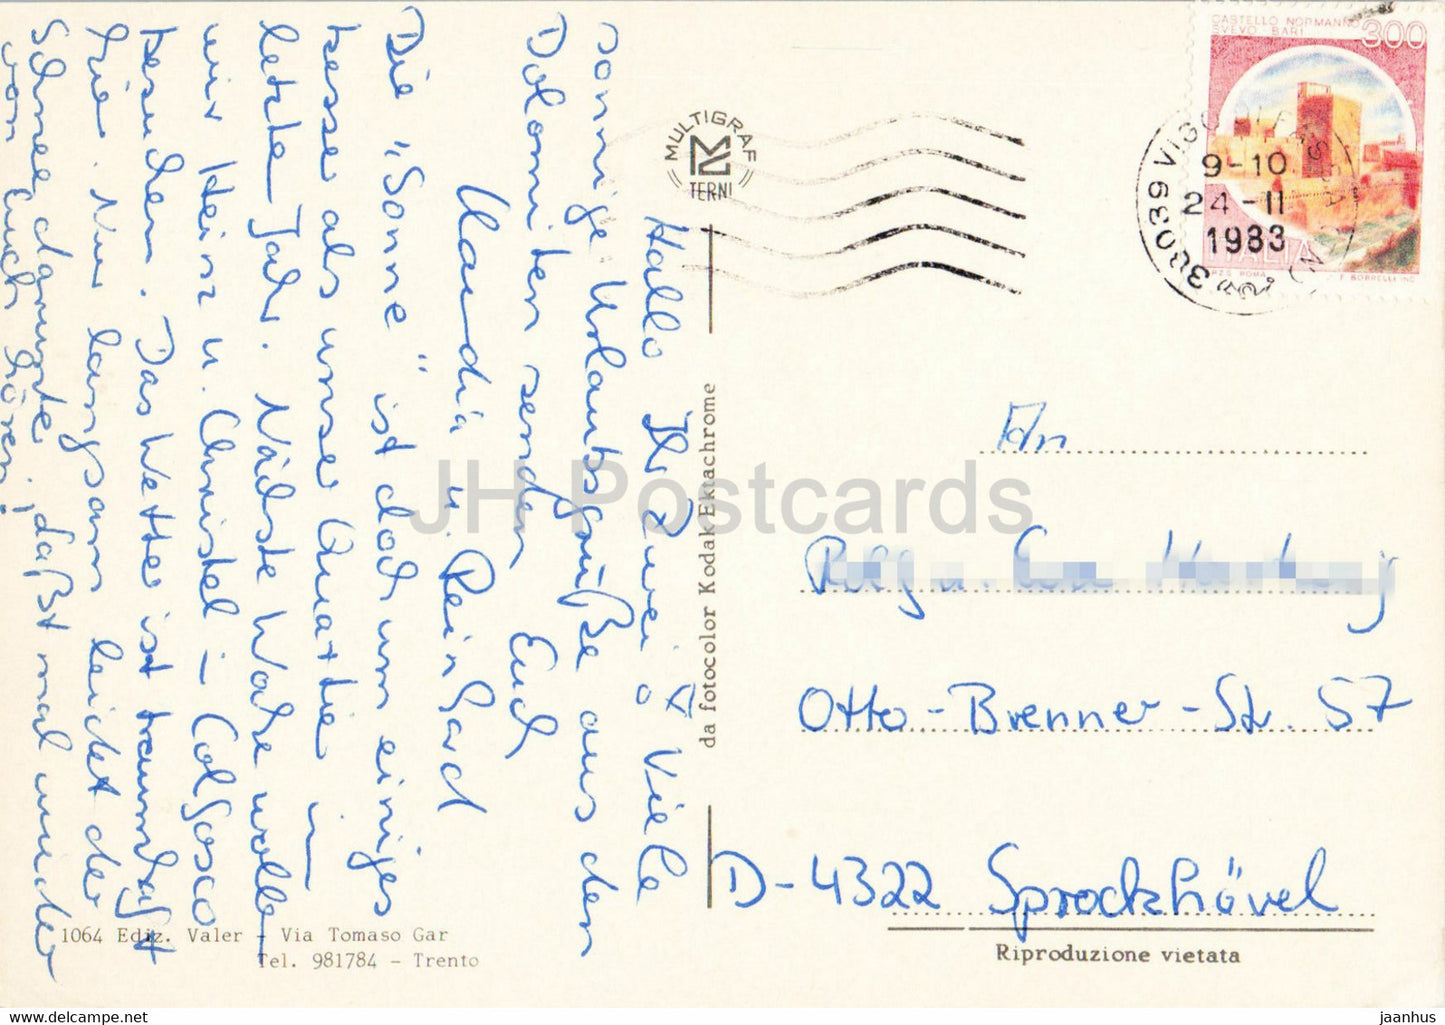 Hallo Ihr Zwei! Viele
sonnige Urlaubsgrüße aus den
Dolomiten senden Euch
Claudia u. Reinhard
Die „Sonne" ist doch um einiges
besser als unser Quartier im
letzten Jahr. Nächste Woche wollen
wir Heinz u. Christel in Colfosco
besuchen. Das Wetter ist traumhaft
hier. Nur langsam leidet der
Schnee darunte
von Euch hören!
laßt mal wieder
1064 Ediz. Valer - Via Tomaso Gar
Tel. 981784 - Trento
da fotocolor Kodak Ektachrome
MULTIGRAF
TERNI
CASTELLO NORMANNO
SVEVO BARI
300
ITALIA
I.P.Z.S. ROMA
F. BORRELLI INC.
38039 VIGO DI FASSA (TN)
9-10
24-II
1983
An
Rolf u.
Otto-Brenner-Str. 57
D-4322 Sprockhövel
Riproduzione vietata
JH Postcards
jaanhus